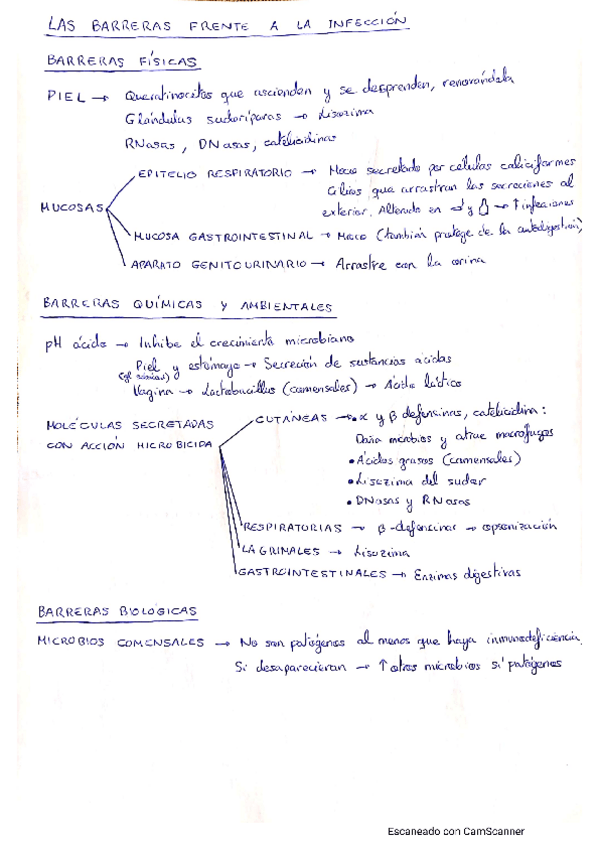 LAS BARRERAS FRENTE A LA INFECCIÓN
BARRERAS FÍSICAS
PIEL → Queratinocitos que ascienden y se desprenden, renovándola
Glándulas sudoríparas → Lisozima
RNasas, DNasas, catelicidinas
MUCOSAS
EPITELIO RESPIRATORIO → Moco secretado por células caliciformes
Cilios que arrastran las secreciones al
exterior. Alterado en y → ↑ infecciones
MUCOSA GASTROINTESTINAL → Moco (también protege de la autodigestión)
APARATO GENITOURINARIO → Arrastre con la orina
BARRERAS QUÍMICAS Y AMBIENTALES
pH ácido → Inhibe el crecimiento microbiano
Piel y estómago → Secreción de sustancias ácidas
Vagina → Lactobacillus (comensales) → Ácido láctico
MOLÉCULAS SECRETADAS
CON ACCIÓN MICROBICIDA
CUTÁNEAS → • α y β defensinas, catelicidina:
Daña microbios y atrae macrófagos
• Ácidos grasos (comensales)
• Lisozima del sudor
• DNasas y RNasas
RESPIRATORIAS → β-defensinas → opsonización
LAGRIMALES → Lisozima
GASTROINTESTINALES → Enzimas digestivas
BARRERAS BIOLÓGICAS
MICROBIOS COMENSALES → No son patógenos al menos que haya inmunodeficiencia.
Si desaparecieran → ↑ otros microbios sí patógenos
Escaneado con CamScanner